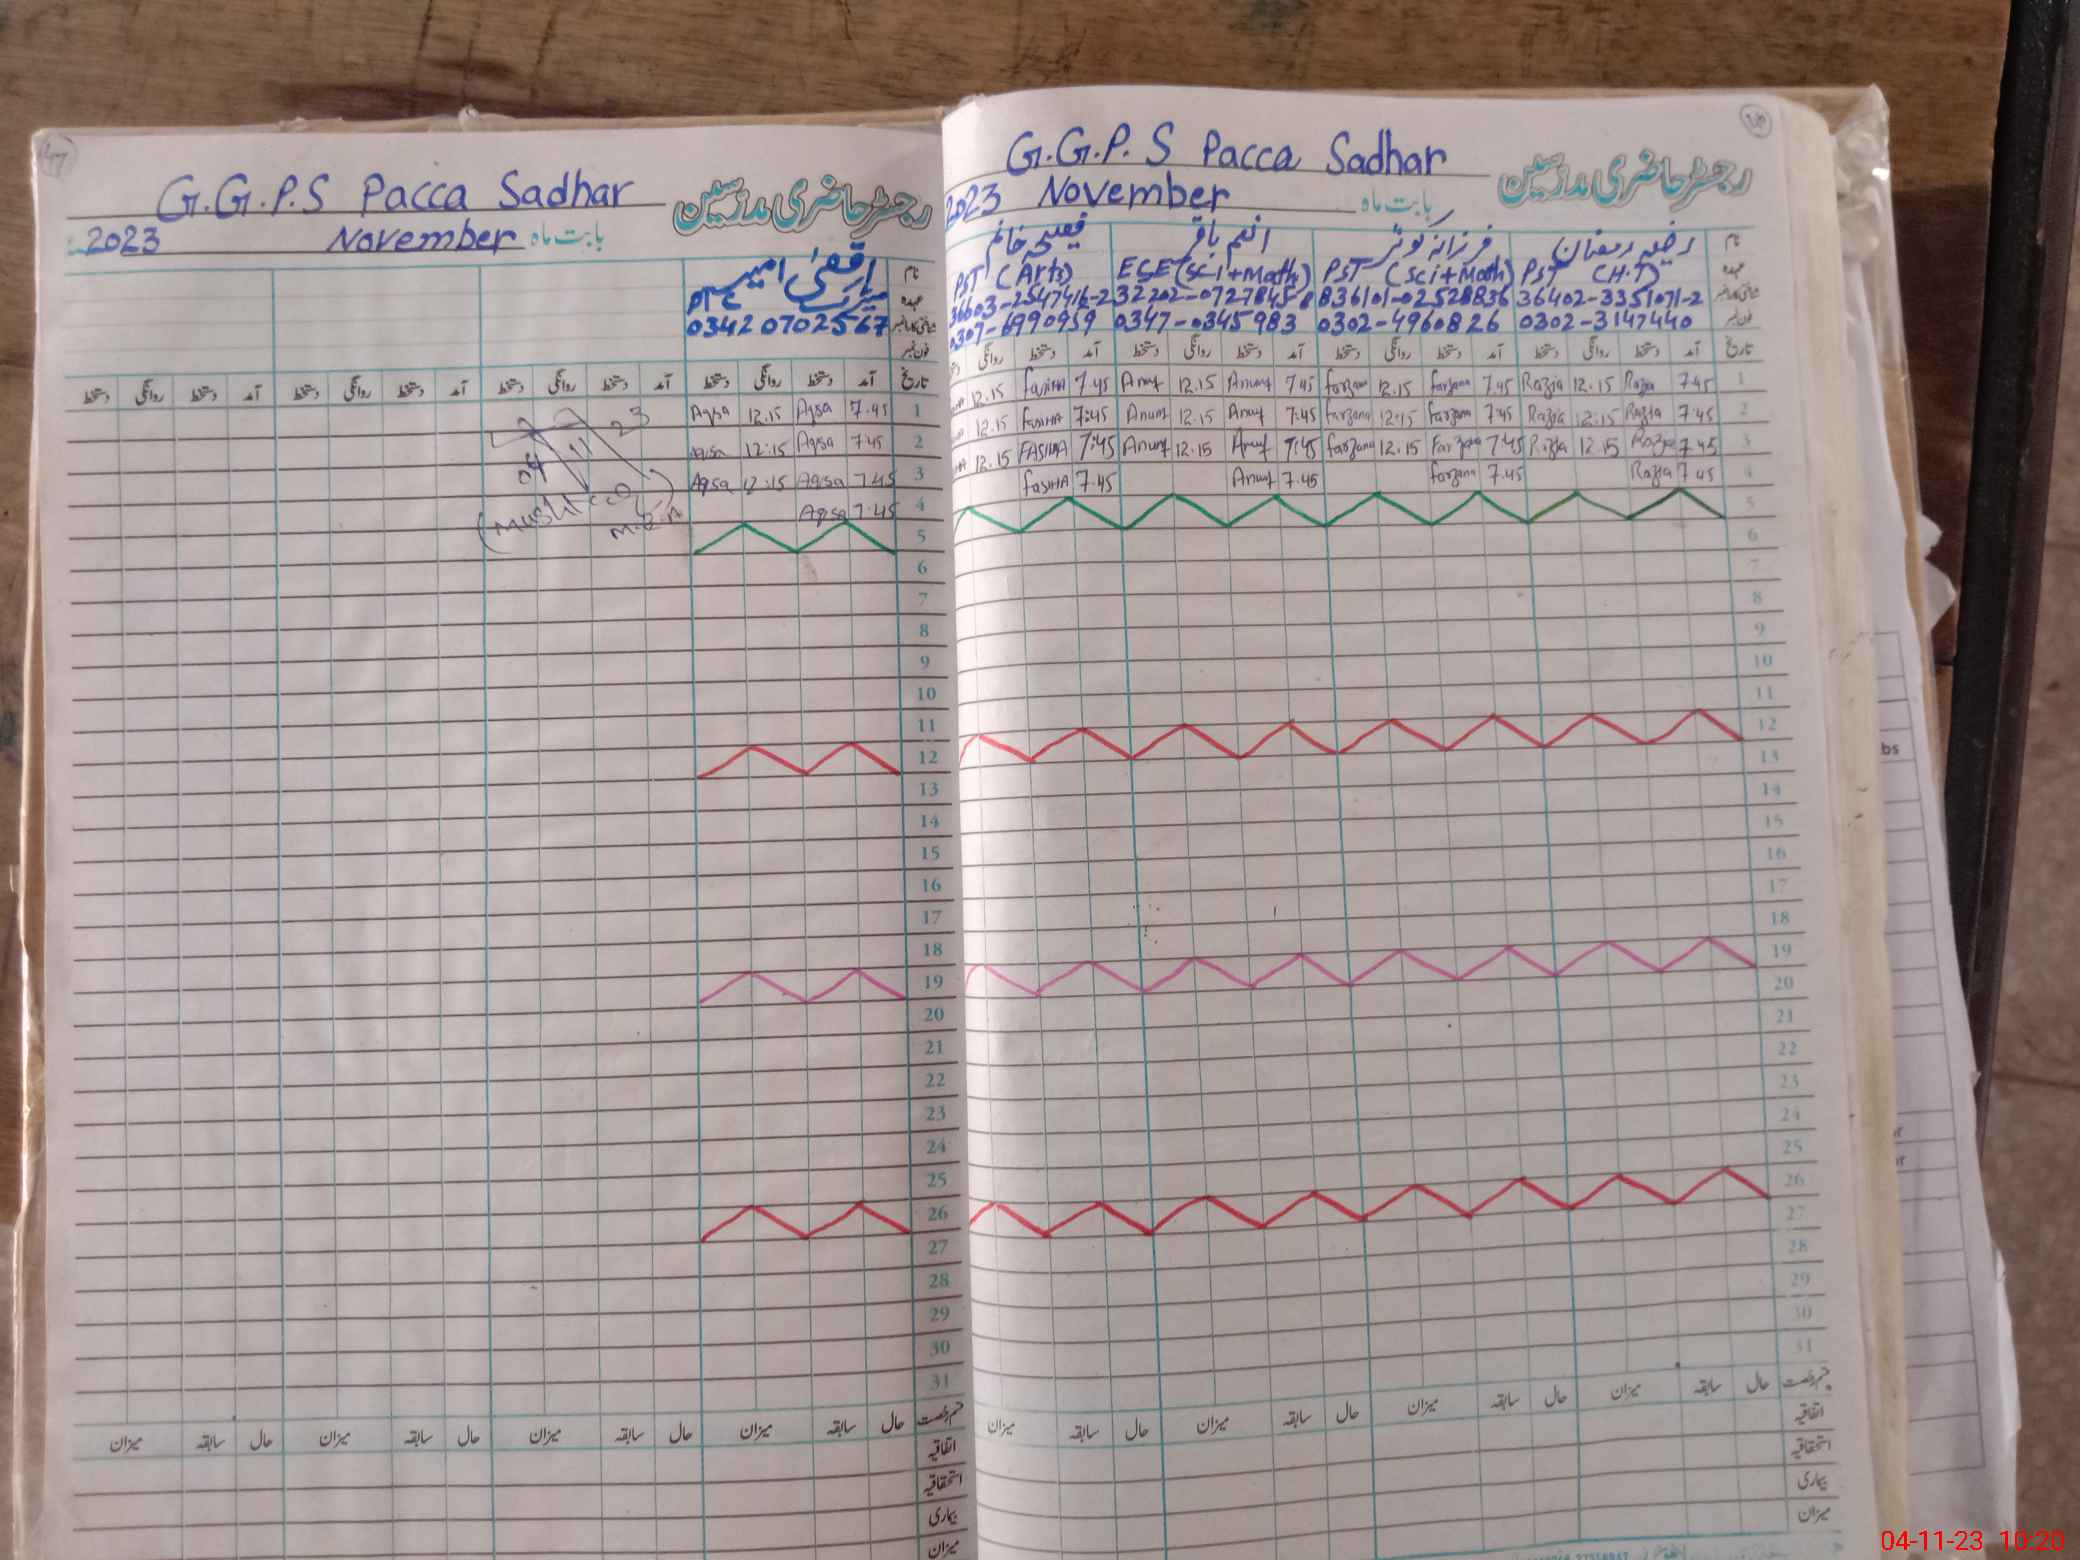 G.G.P.S Pacca Sadhar
رجسٹر حاضری مدرسین
2023 November بابت ماہ
نام
عہدہ
0342 0702567
فون نمبر
دستخط روانگی دستخط آمد دستخط روانگی دستخط آمد دستخط روانگی دستخط آمد دستخط روانگی دستخط آمد تاریخ
Aqsa 12.15 Aqsa 7.45 1
Aqsa 12:15 Aqsa 7.45 2
Aqsa 12:15 Aqsa 7.45 3
Aqsa 7.45 4
04 11 23
5
6
7
8
9
10
11
12
13
14
15
16
17
18
19
20
21
22
23
24
25
26
27
28
29
30
31
میزان سابقہ حال میزان سابقہ حال میزان سابقہ حال میزان سابقہ حال قسم رخصت
اتفاقیہ
استحقاقیہ
بیماری
میزان
G.G.P.S Pacca Sadhar
رجسٹر حاضری مدرسین
2023 November بابت ماہ
فصیحہ خانم انعم باقر فرزانہ کوثر رضیہ رمضان نام
PST (Arts) ESE (Sci+Math) PST (Sci+Math) PST (H.T) عہدہ
36603-2547416-2 32202-0727845-8 36101-0252883-6 36402-3351071-2
0307-6990959 0347-0345983 0302-4960826 0302-3147440
روانگی دستخط آمد دستخط روانگی دستخط آمد دستخط روانگی دستخط آمد دستخط روانگی دستخط آمد تاریخ
12.15 FASIHA 7.45 Anum 12.15 Anum 7.45 farzana 12.15 farzana 7.45 Razia 12.15 Razia 7.45 1
12.15 FASIHA 7:45 Anum 12.15 Anum 7:45 farzana 12:15 farzana 7.45 Razia 12:15 Razia 7.45 2
12.15 FASIHA 7:45 Anum 12.15 Anum 7:45 farzana 12.15 Farzana 7.45 Razia 12.15 Razia 7.45 3
FASIHA 7.45 Anum 7.45 farzana 7.45 Razia 7.45 4
5
6
7
8
9
10
11
12
13
14
15
16
17
18
19
20
21
22
23
24
25
26
27
28
29
30
31
میزان سابقہ حال میزان سابقہ حال میزان سابقہ حال میزان سابقہ حال قسم رخصت
اتفاقیہ
استحقاقیہ
بیماری
میزان
04-11-23 10:20